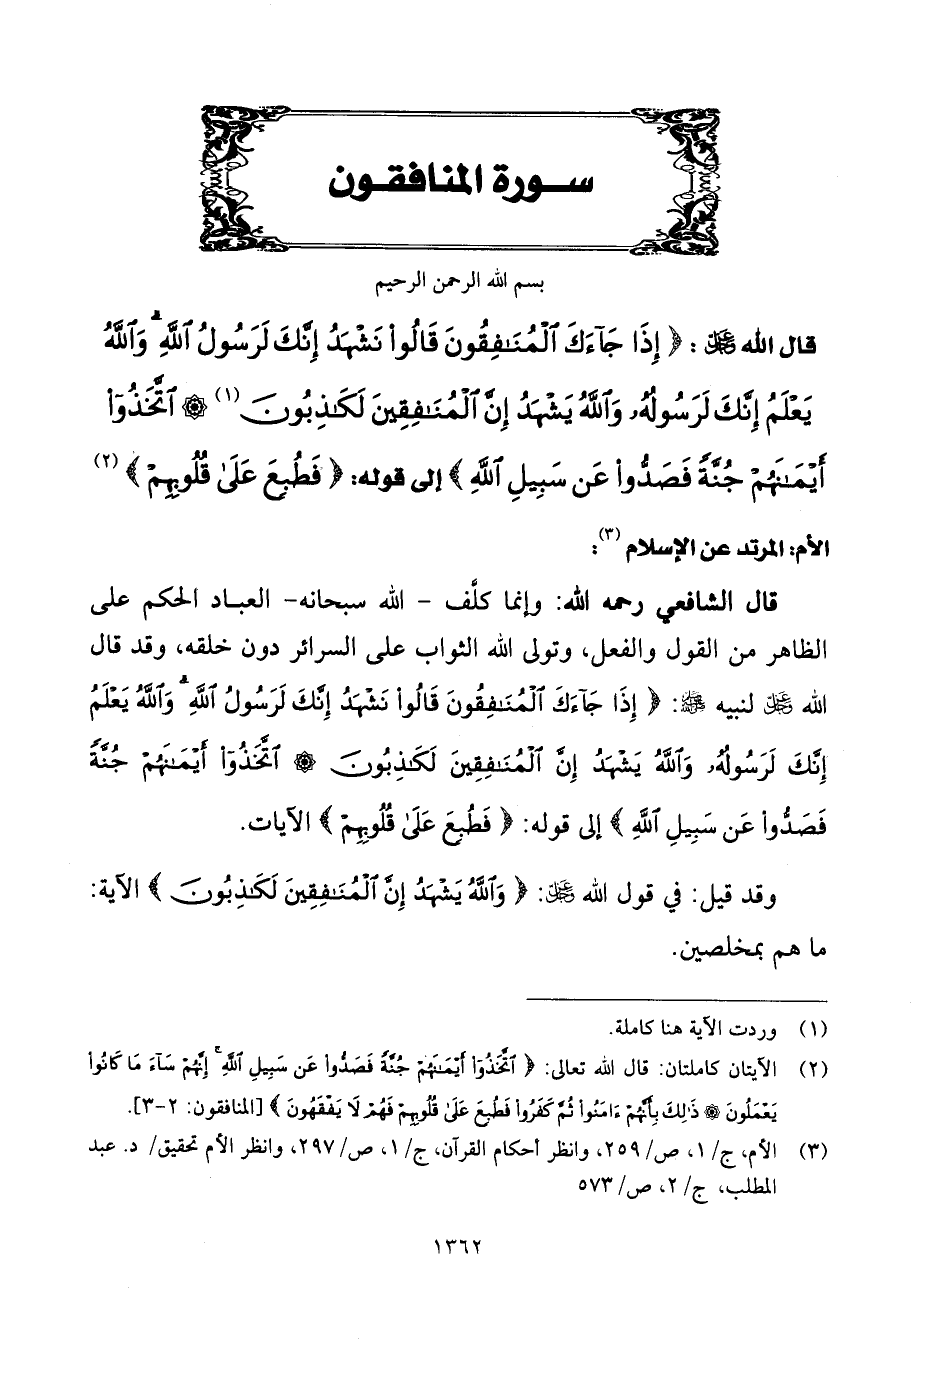 سورة المنافقون
بسم الله الرحمن الرحيم
قال الله ﷻ: ﴿ إِذَا جَآءَكَ ٱلْمُنَـٰفِقُونَ قَالُوا۟ نَشْهَدُ إِنَّكَ لَرَسُولُ ٱللَّهِ ۗ وَٱللَّهُ
يَعْلَمُ إِنَّكَ لَرَسُولُهُۥ وَٱللَّهُ يَشْهَدُ إِنَّ ٱلْمُنَـٰفِقِينَ لَكَـٰذِبُونَ (١) ۞ ٱتَّخَذُوٓا۟
أَيْمَـٰنَهُمْ جُنَّةً فَصَدُّوا۟ عَن سَبِيلِ ٱللَّهِ ﴾ إلى قوله: ﴿ فَطُبِعَ عَلَىٰ قُلُوبِهِمْ ﴾ (٢)
الأم: المرتد عن الإسلام (٣):
قال الشافعي رحمه الله: وإنما كلَّف - الله سبحانه- العباد الحكم على
الظاهر من القول والفعل، وتولى الله الثواب على السرائر دون خلقه، وقد قال
الله ﷻ لنبيه ﷺ: ﴿ إِذَا جَآءَكَ ٱلْمُنَـٰفِقُونَ قَالُوا۟ نَشْهَدُ إِنَّكَ لَرَسُولُ ٱللَّهِ ۗ وَٱللَّهُ يَعْلَمُ
إِنَّكَ لَرَسُولُهُۥ وَٱللَّهُ يَشْهَدُ إِنَّ ٱلْمُنَـٰفِقِينَ لَكَـٰذِبُونَ ۞ ٱتَّخَذُوٓا۟ أَيْمَـٰنَهُمْ جُنَّةً
فَصَدُّوا۟ عَن سَبِيلِ ٱللَّهِ ﴾ إلى قوله: ﴿ فَطُبِعَ عَلَىٰ قُلُوبِهِمْ ﴾ الآيات.
وقد قيل: في قول الله ﷻ: ﴿ وَٱللَّهُ يَشْهَدُ إِنَّ ٱلْمُنَـٰفِقِينَ لَكَـٰذِبُونَ ﴾ الآية:
ما هم بمخلصين.
(١) وردت الآية هنا كاملة.
(٢) الآيتان كاملتان: قال الله تعالى: ﴿ ٱتَّخَذُوٓا۟ أَيْمَـٰنَهُمْ جُنَّةً فَصَدُّوا۟ عَن سَبِيلِ ٱللَّهِ ۚ إِنَّهُمْ سَآءَ مَا كَانُوا۟
يَعْمَلُونَ ۞ ذَٰلِكَ بِأَنَّهُمْ ءَامَنُوا۟ ثُمَّ كَفَرُوا۟ فَطُبِعَ عَلَىٰ قُلُوبِهِمْ فَهُمْ لَا يَفْقَهُونَ ﴾ [المنافقون: ٢-٣].
(٣) الأم، ج/ ١، ص/ ٢٥٩، وانظر أحكام القرآن، ج/ ١، ص/ ٢٩٧، وانظر الأم تحقيق/ د. عبد
المطلب، ج/ ٢، ص/ ٥٧٣
١٣٦٢